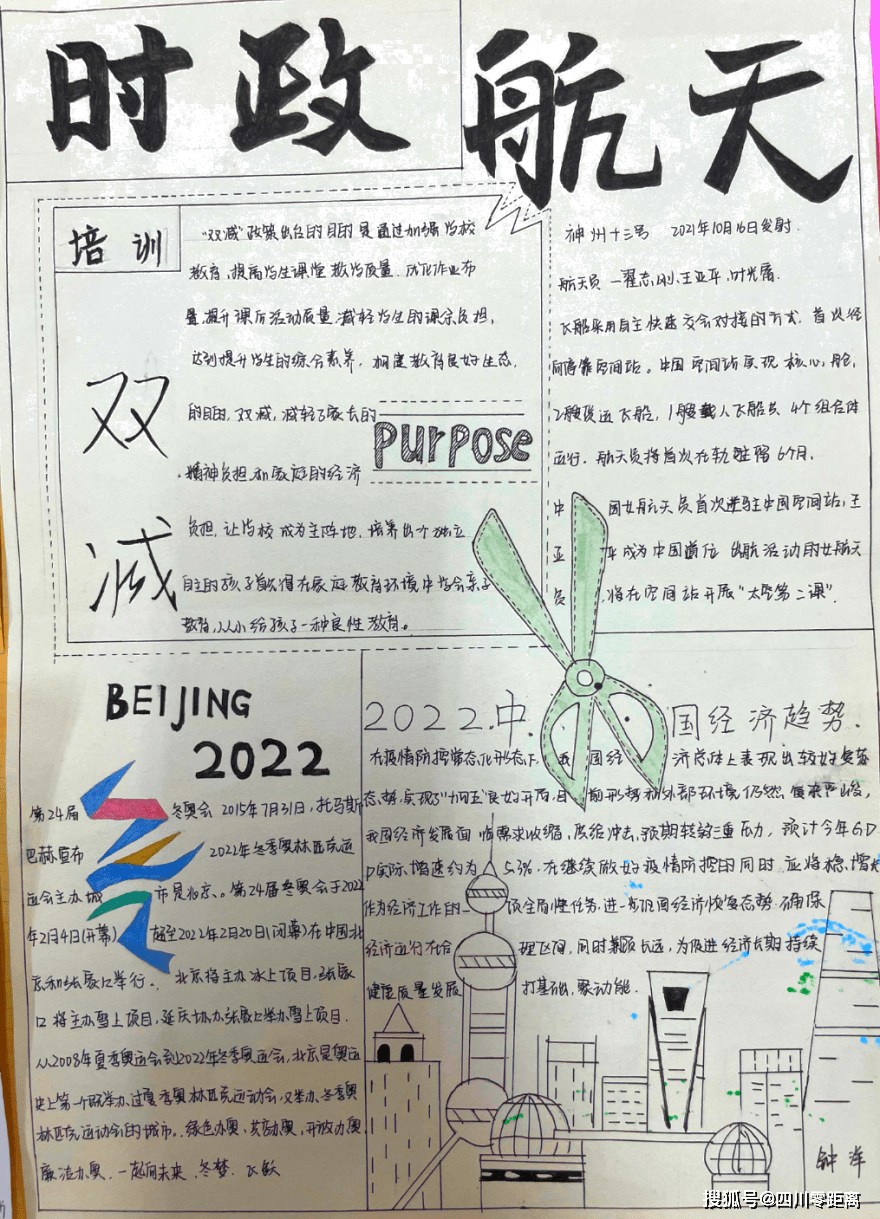 时政航天
培训
双减
"双减"政策出台的目的是通过加强学校
教育,提高学生课堂教学质量.优化作业布
置,提升课后活动质量,减轻学生的课余负担,
达到提升学生的综合素养,构建教育良好生态,
的目的,双减,减轻了家长的
purpose
精神负担,和家庭的经济
负担,让学校成为主阵地.培养出个独立
自主的孩子首
在家庭教育环境中学会亲子
教育,从小给孩子一种良性教育。
神州十三号 2021年10月16日发射.
航天员一翟志刚,王亚平,叶光富.
飞船采用自主快速交会对接的方式.首次径
向停靠空间站。中国空间站实现核心舱,
2艘货运飞船,1艘载人飞船共4个组合体
运行.航天员将首次在轨驻留6个月.
中国女航天员首次进驻中国空间站,王
亚平成为中国首位出舱活动的女航天
员,将在空间站开展"太空第二课".
BEIJING
2022
第24届冬奥会 2015年7月31日,托马斯
巴赫宣布 2022年冬季奥林匹克运
运会主办城市是北京、。第24届冬奥会于2022
年2月4日(开幕)起至2022年2月20日(闭幕)在中国北
京和张家口举行。北京将主办冰上项目,张家
口将主办雪上项目,延庆协办张家口举办雪上项目.
从2008年夏季奥运会到2022年冬季奥运会,北京是奥运
史上第一个既举办过夏季奥林匹克运动会,又举办冬季奥
林匹克运动会的城市。绿色办奥,共享办奥,开放办奥,
廉洁办奥.一起向未来.冬梦.飞跃
2022.中国经济趋势.
在疫情防控常态化形态下,我国经济总体上表现出较好复苏
态势,实现了"十四五"良好开局.目前形势和外部环境仍然复杂严峻,
我国经济发展面临需求收缩,供给冲击,预期转弱三重压力,预计今年GD
P实际增速约为5.3%.在继续做好疫情防控的同时,应将稳增长
作为经济工作的一项全局性任务,进一步巩固经济恢复态势.确保
经济运行在合理区间,同时兼顾长远,为促进经济长期持续
健康质量发展打基础,聚动能.
钟洋
搜狐号@四川零距离